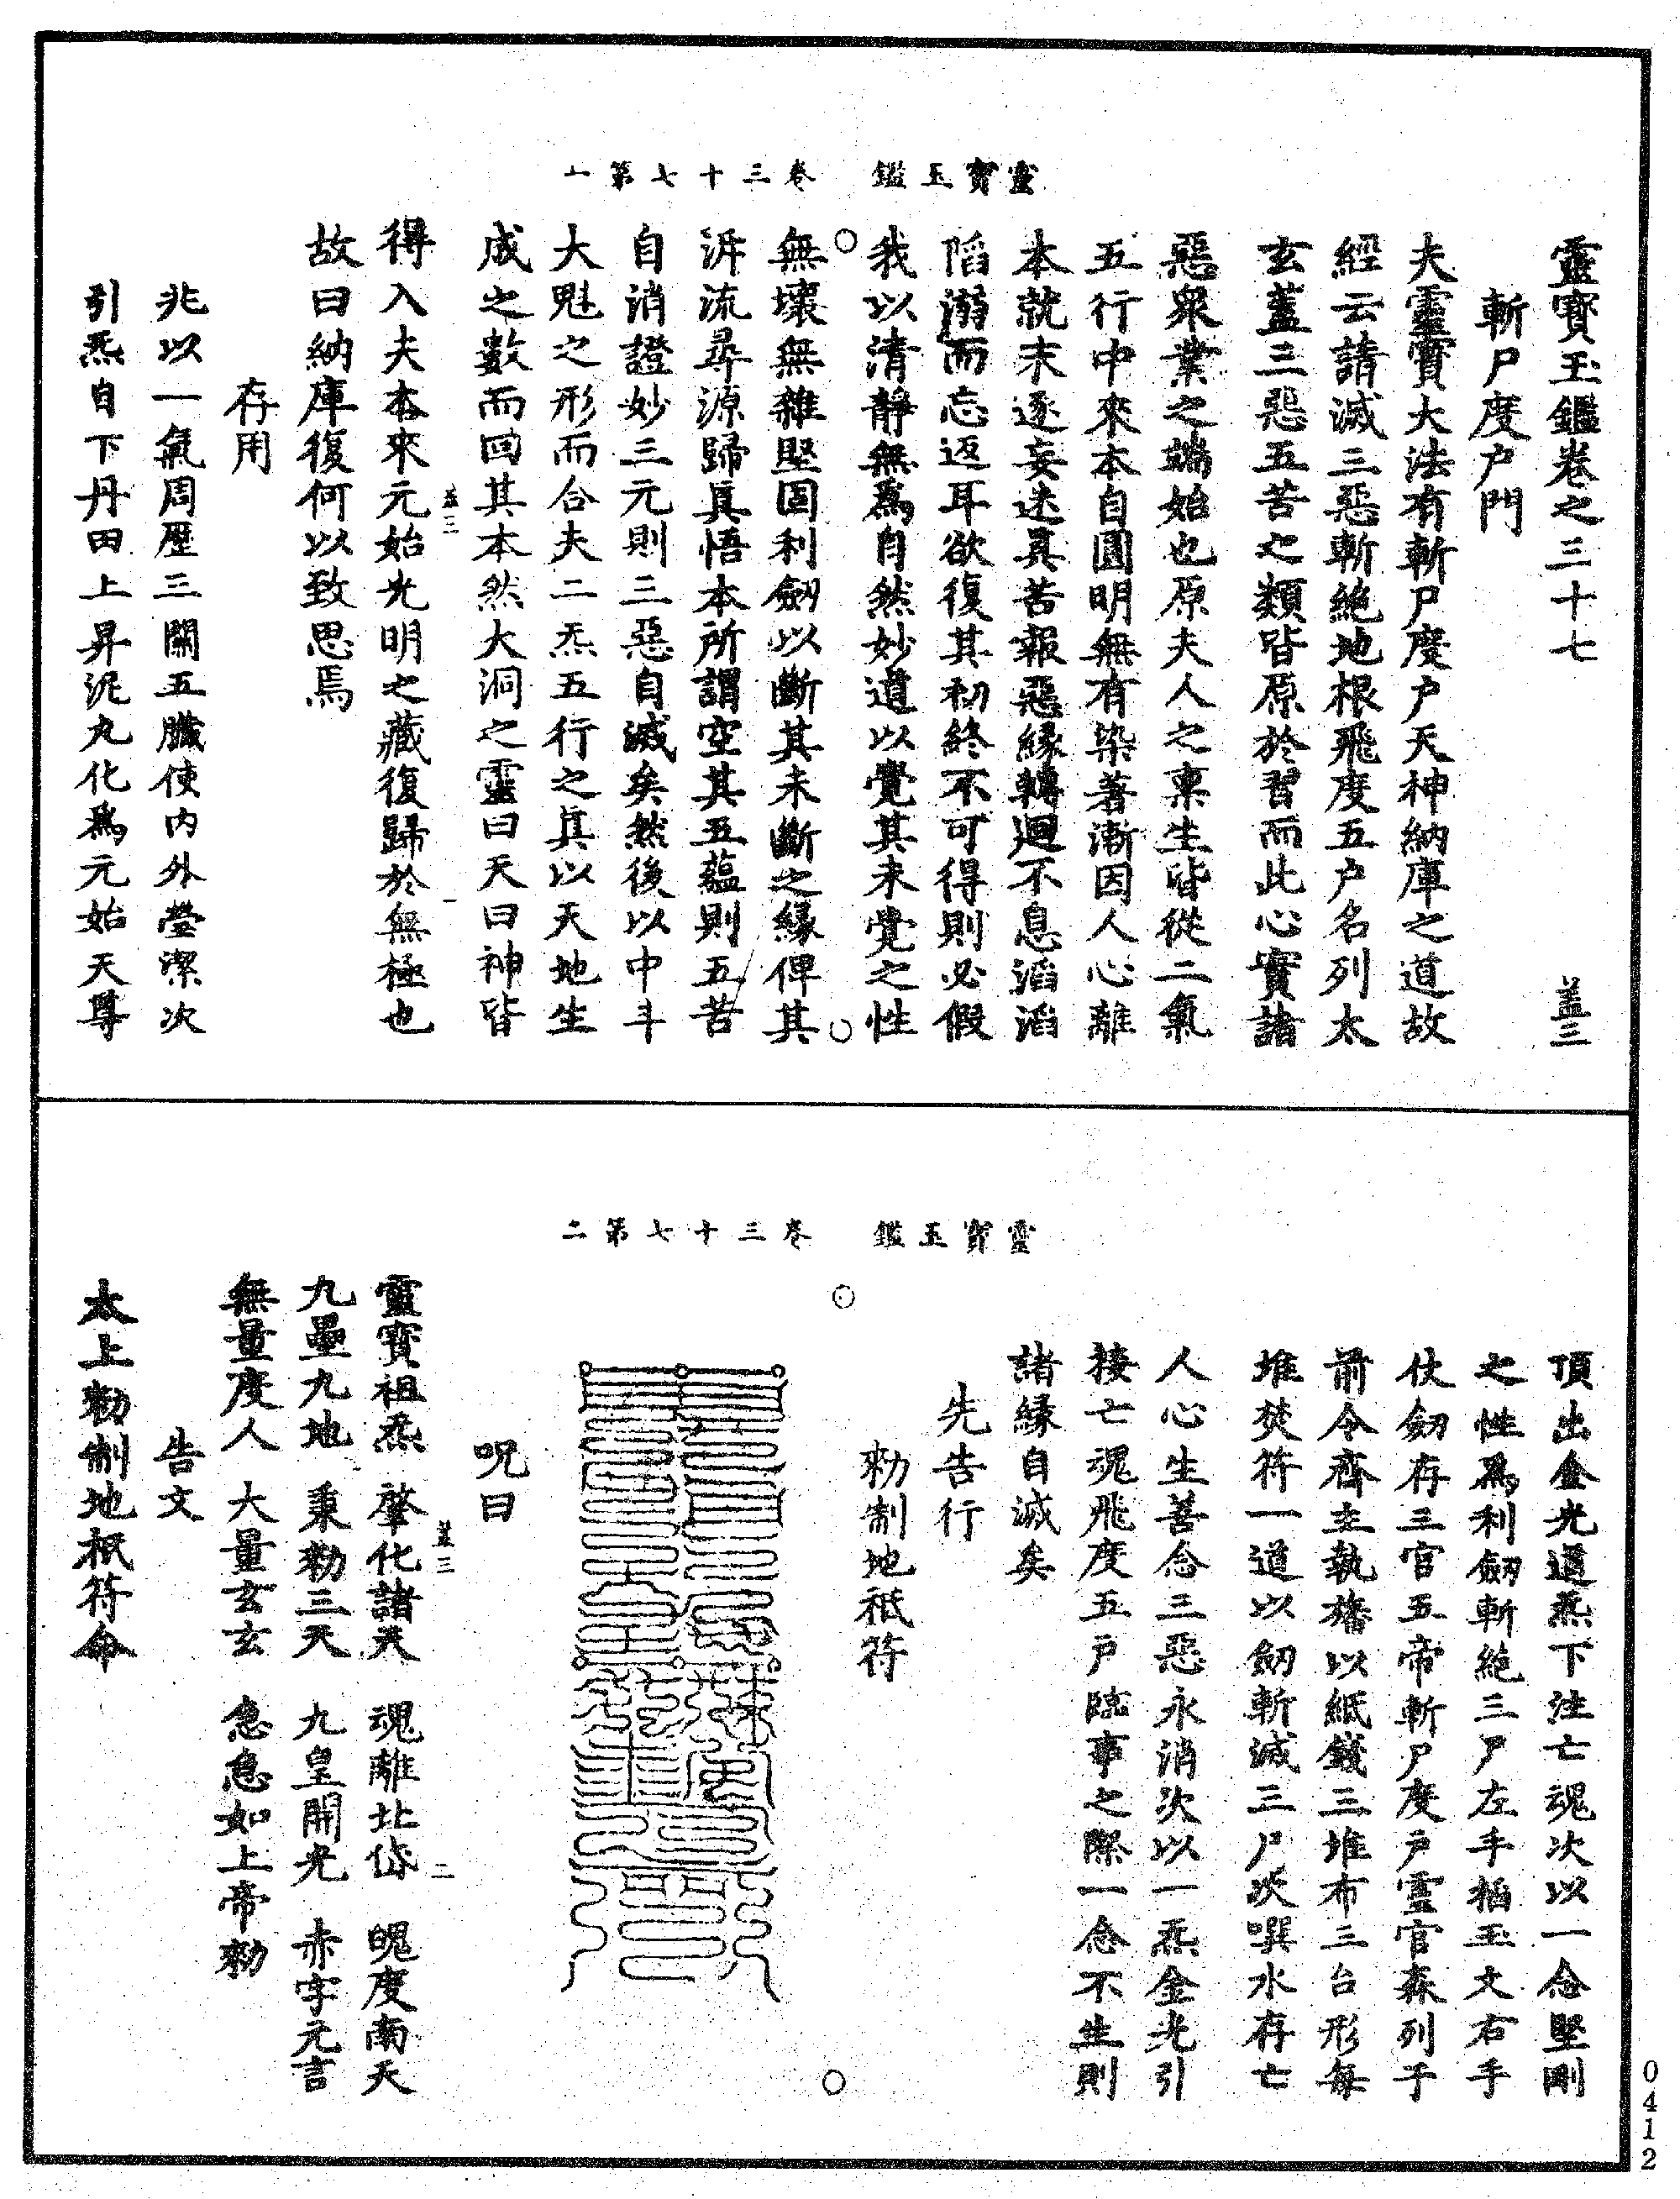 靈寶玉鑑卷三十七第一
靈寶玉鑑卷之三十七 蓋三
斬尸度户門
夫靈寶大法有斬尸度户天神納庫之道故
經云請滅三惡斬絶地根飛度五户名列太
玄蓋三惡五苦之類皆原於習而此心實諸
惡衆業之端始也原夫人之稟生皆從二氣
五行中來本自圓明無有染著漸因人心離
本就末逐妄迷真苦報惡緣轉迴不息滔滔
陷溺而忘返耳欲復其初終不可得則必假
我以清靜無為自然妙道以覺其未覺之性
無壞無雜堅固利劒以斷其未斷之緣俾其
泝流尋源歸真悟本所謂空其五蘊則五苦
自消證妙三元則三惡自滅矣然後以中斗
大魁之形而合夫二炁五行之真以天地生
成之數而回其本然大洞之靈曰天曰神皆
蓋三 一
得入夫本來元始光明之藏復歸於無極也
故曰納庫復何以致思焉
存用
兆以一氣周歷三關五臟使内外瑩潔次
引炁自下丹田上昇泥丸化為元始天尊
靈寶玉鑑卷三十七第二
頂出金光道炁下注亡魂次以一念堅剛
之性為利劒斬絶三尸左手掐玉文右手
仗劒存三官五帝斬尸度户靈官森列于
前令齊主執旛以紙錢三堆布三台形每
堆焚符一道以劒斬滅三尸次噀水存亡
人心生善念三惡永消次以一炁金光引
接亡魂飛度五户臨事之際一念不生則
諸緣自滅矣
先告行
勑制地祇符
呪曰
蓋三 二
靈寶祖炁 肇化諸天 魂離北岱 魄度南天
九壘九地 秉勑三天 九皇開光 赤字元言
無量度人 大量玄玄 急急如上帝勑
告文
太上勑制地祇符命
0412